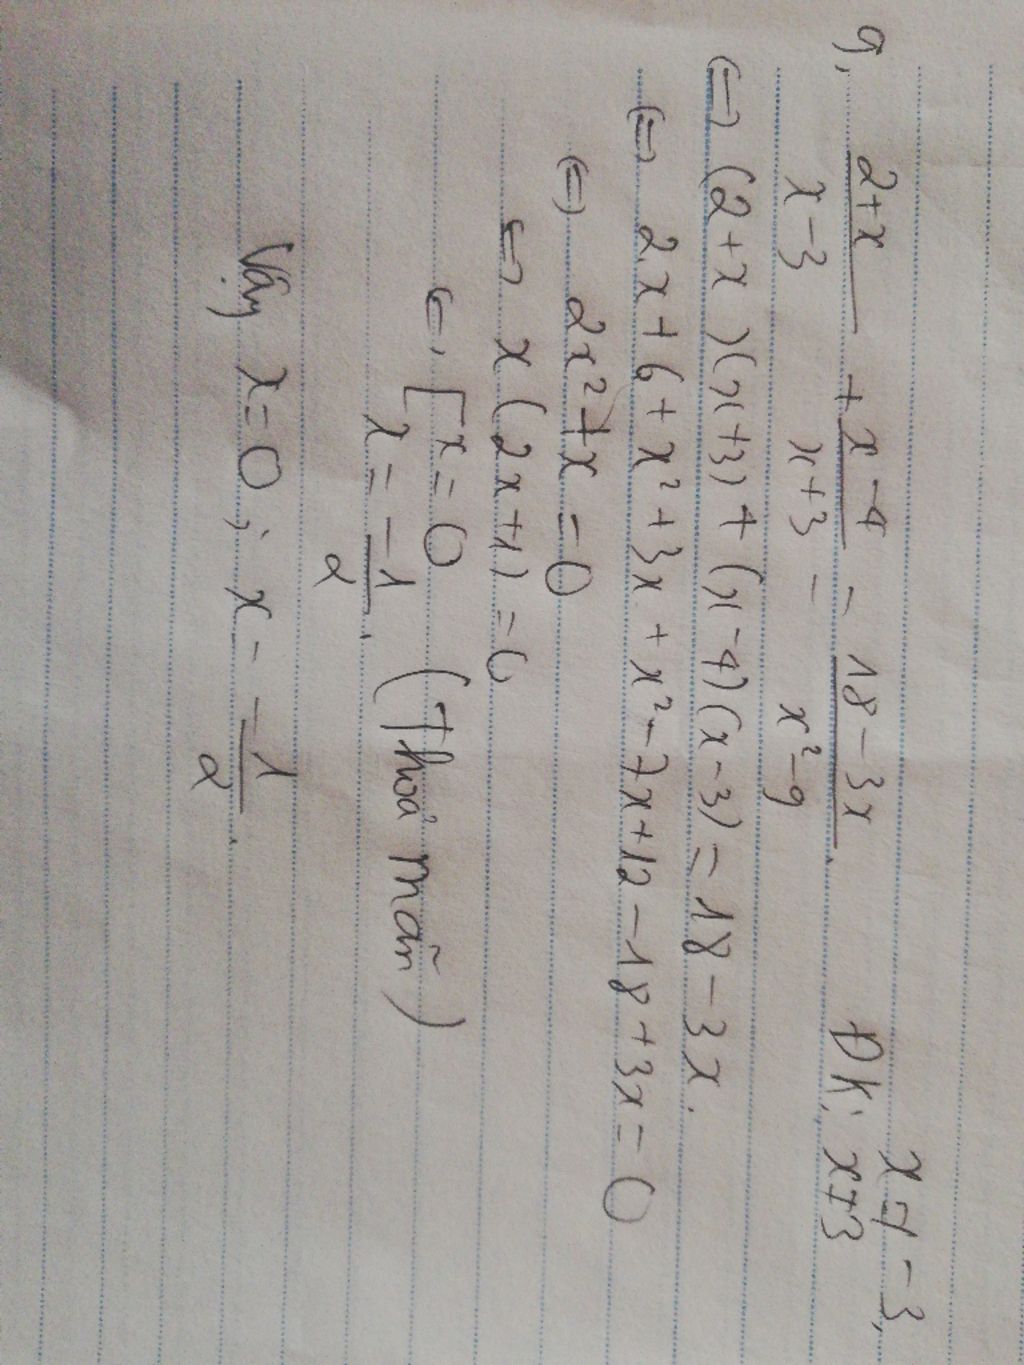 g, (2+x)/(x-3) + (x-4)/(x+3) = (18-3x)/(x²-9). ĐK: x ≠ -3, x ≠ 3
⇔ (2+x)(x+3) + (x-4)(x-3) = 18-3x.
⇔ 2x+6+x²+3x+x²-7x+12-18+3x=0
⇔ 2x²+x=0
⇔ x(2x+1)=0
⇔ [x=0
x = -1/2. (Thoả mãn)
Vậy x=0; x = -1/2.